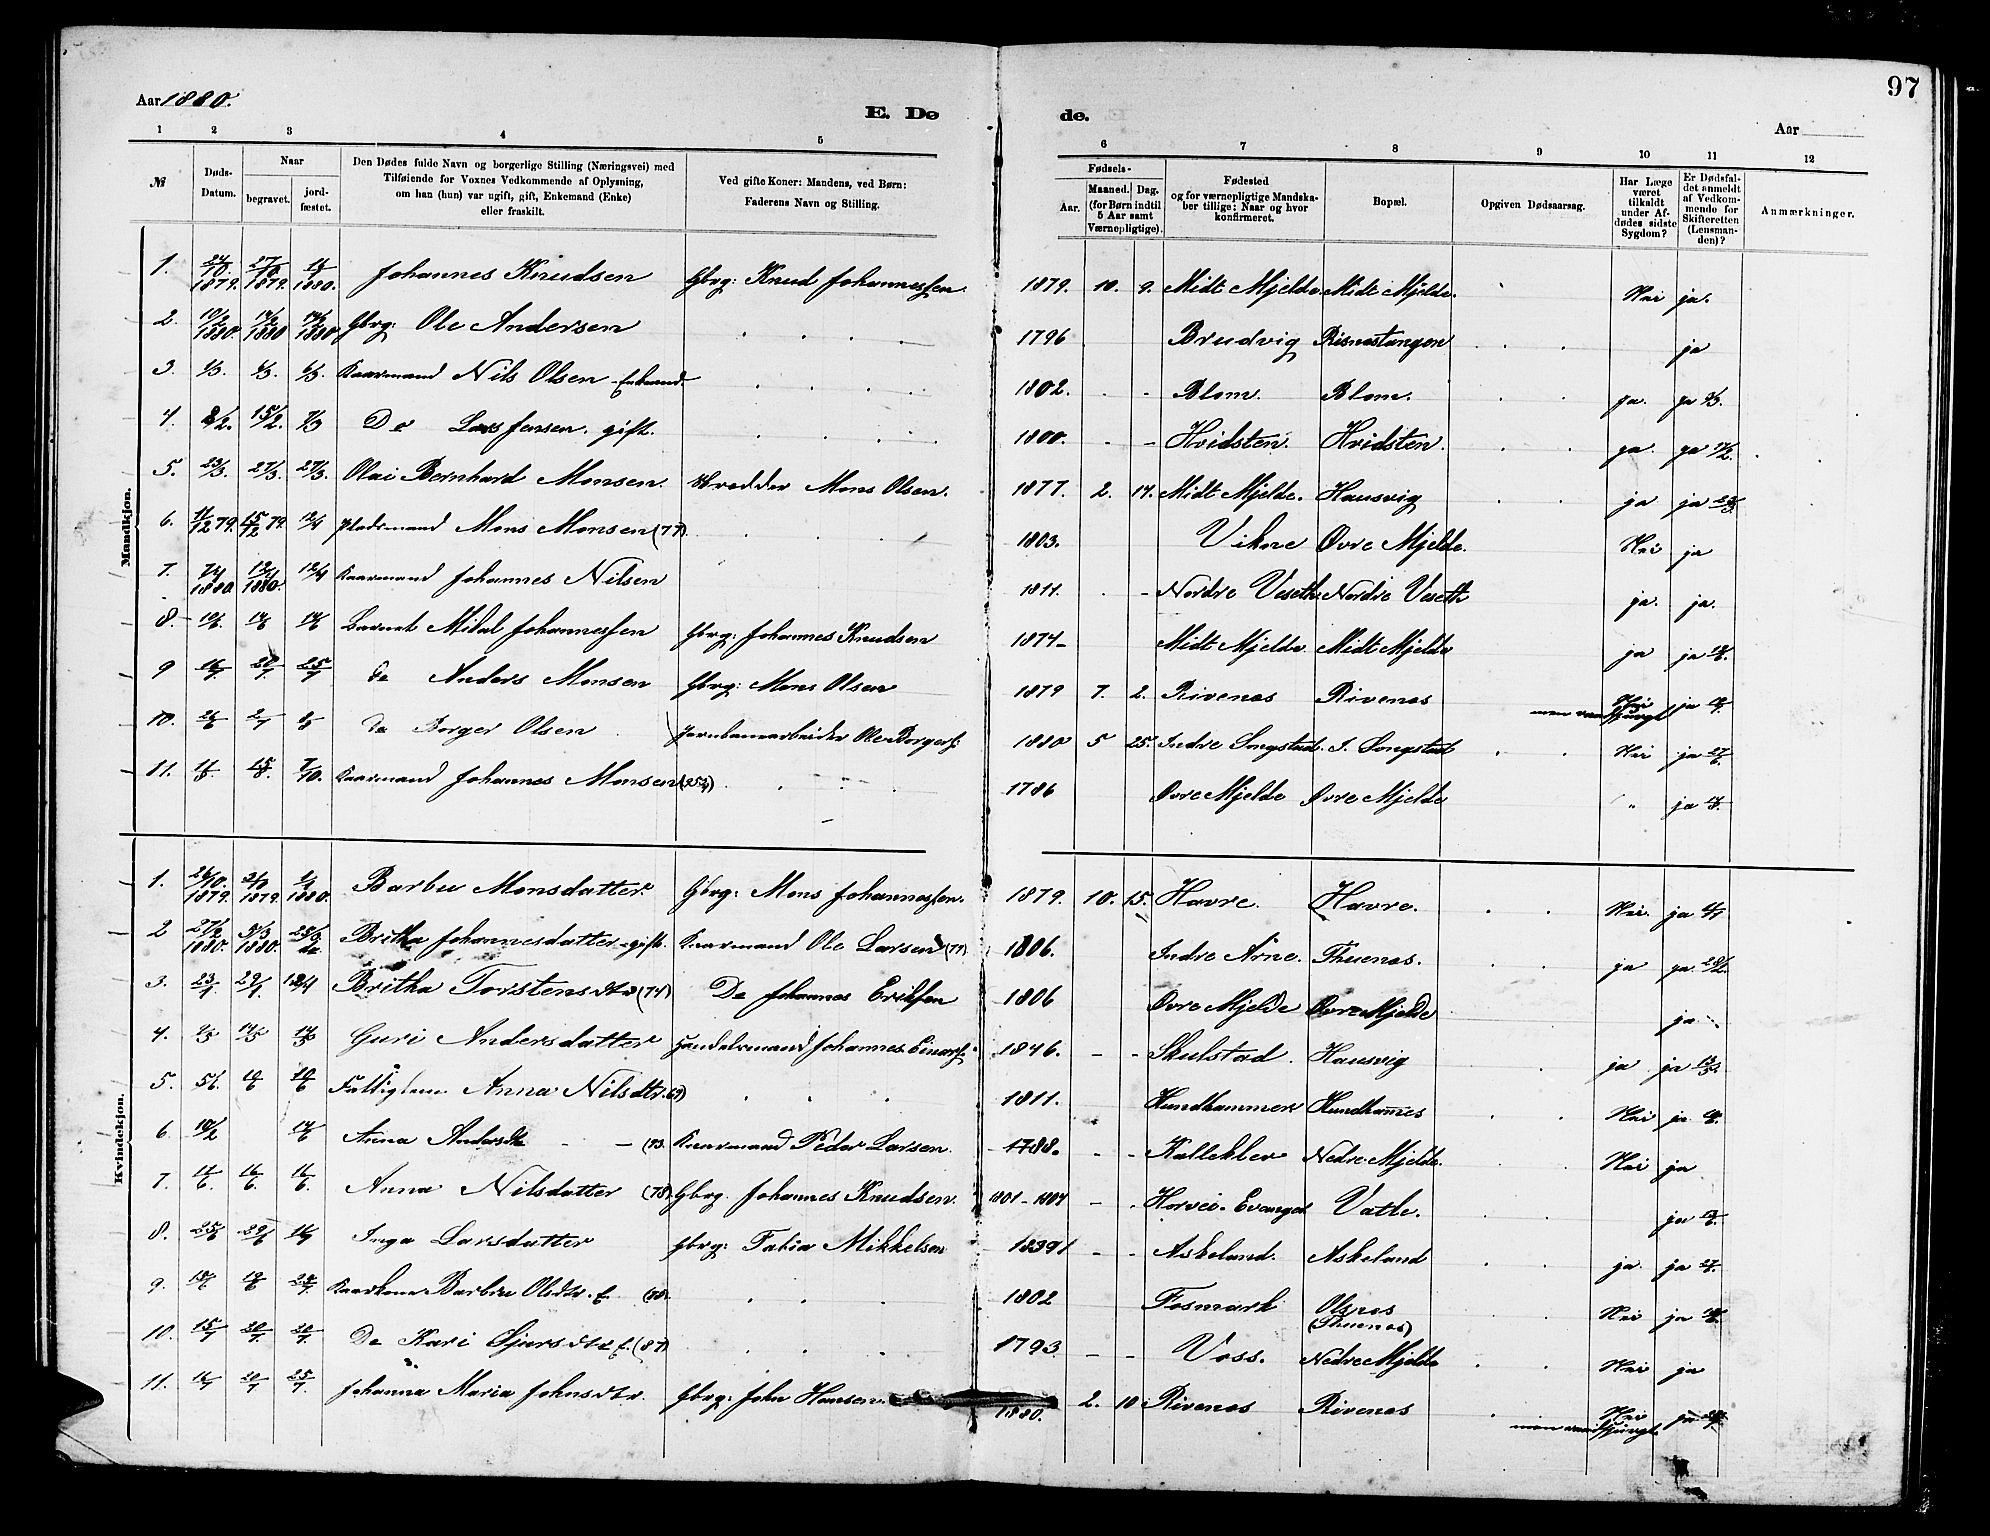 97
Aar 1880.
E. Døde.
Aar
1 2 3 4 5 6 7 8 9 10 11 12
№
Døds-Datum.
Naar
begravet.
jord-fæstet.
Den Dødes fulde Navn og borgerlige Stilling (Næringsvei) med
Tilføiende for Voxnes Vedkommende af Oplysning,
om han (hun) var ugift, gift, Enkemand (Enke)
eller fraskilt.
Ved gifte Koner: Mandens, ved Børn:
Faderens Navn og Stilling.
Fødsels-
Aar.
Maaned. Dag.
(for Børn indtil
5 Aar samt
Værnepligtige).
Fødested
og for værnepligtige Mandska-
ber tillige: Naar og hvor
konfirmeret.
Bopæl.
Opgiven Dødsaarsag.
Har Læge
været
tilkaldt
under Af-
dødes sidste
Sygdom?
Er Dødsfal-
det anmeldt
af Vedkom-
mende for
Skifteretten
(Lensman-
den)?
Anmærkninger.
Mandkjøn.
1. 24/10 1879. 27/10 1879. 1880. Johannes Knudsen Gbrg: Knud Johannessen 1879. 10. 9. Midt Mjelde Midt Mjelde. Nei ja.
2. 1880. 1880 1880 Gbrg: Ole Andersen 1796 Brudvig Risnestangen ja
3. Kaarmand Nils Olsen Enkemand 1802. Blom. Blom. ja. ja
4. 8/2. 15/2. 7/3 Do Lars Jensen. gift. 1800. Hvidsten. Hvidsten. ja. ja
5. 23/3. 27/3. 27/3. Olai Bernhard Monsen. Skrædder Mons Olsen. 1877. 2. 17. Midt Mjelde. Hausvig ja ja 23/3
6. 11/12 79. 15/12 79. 12/4 Pladsmand Mons Monsen (77). 1803. Vikne Øvre Mjelde. Nei ja
7. 7/4 1880 12/4 1880. 12/4 Kaarmand Johannes Nilsen 1811. Nordre Veseth Nordre Veseth ja. ja.
8. Barnet Mikal Johannessen Gbrg: Johannes Knudsen 1874 Midt Mjelde Midt Mjelde ja ja
9 16/7. 20/7 25/7 do Anders Monsen Gbrg: Mons Olsen 1879 7. 2. Rivenes Rivenes Nei ja
10. 26/6 2/7 do Borger Olsen Jernbanearbeider Ole Borgers: 1880 5 25. Indre Songstad. I. Songstad Nei ja 27/6
11. 11/8 15/8. 7/10. Kaarmand Johannes Monsen 1786 Øvre Mjelde Øvre Mjelde " ja
Kvindekjøn.
1. 26/10. 1879. 31/10 1879. 1880. Barbu Monsdatter Gbrg: Mons Johannessen. 1879. 10. 15. Havre. Havre. Nei. ja
2 27/2 1880. 1880. Britha Johannesdatter gift. Kaarmand Ole Larsen (77) 1806. Indre Arne. Thuenes. ja ja. 28/2.
3. 23/1. 29/1. Britha Torstensdtr (74) Do Johannes Eriksen 1806 Øvre Mjelde Øvre Mjelde ja
4. Guri Andersdatter Handelsmand Johannes Einars: 1846. Skulstad. Hausvig ja ja
5. 5/6. Fattiglem Anna Nilsdtr. 69) 1811. Hundhammer Hundhammes Nei ja
6. Anna Andersdtr Kaarmand Peder Larsen. 1788. Kalleklev Nedre Mjelde. Nei ja
7. 11/6. 16/6. 16/6. Anna Nilsdatter (78). Gbrg. Johannes Knudsen. 1801 - 1804 Horvei. Evanger Vatle. ja
8. 25/6 29/6 Inga Larsdatter Gbrg: Tabia Mikkelsen 1839 Askeland. Askeland ja. ja
9. Kaarkone Barbro Olsdtr. E. 1802 Fosmark Olsnes (Thuenes) Nei ja
10. 15/7 20/7 20/7. Do Kari Sjursdtr E. (87) 1793. Voss. Nedre Mjelde Nei ja
11. 16/7 20/7 25/7. Johanna Maria Johnsdtr. Gbrg: John Hansen. 1880. 2. 10 Rivenes Rivenes Nei ja